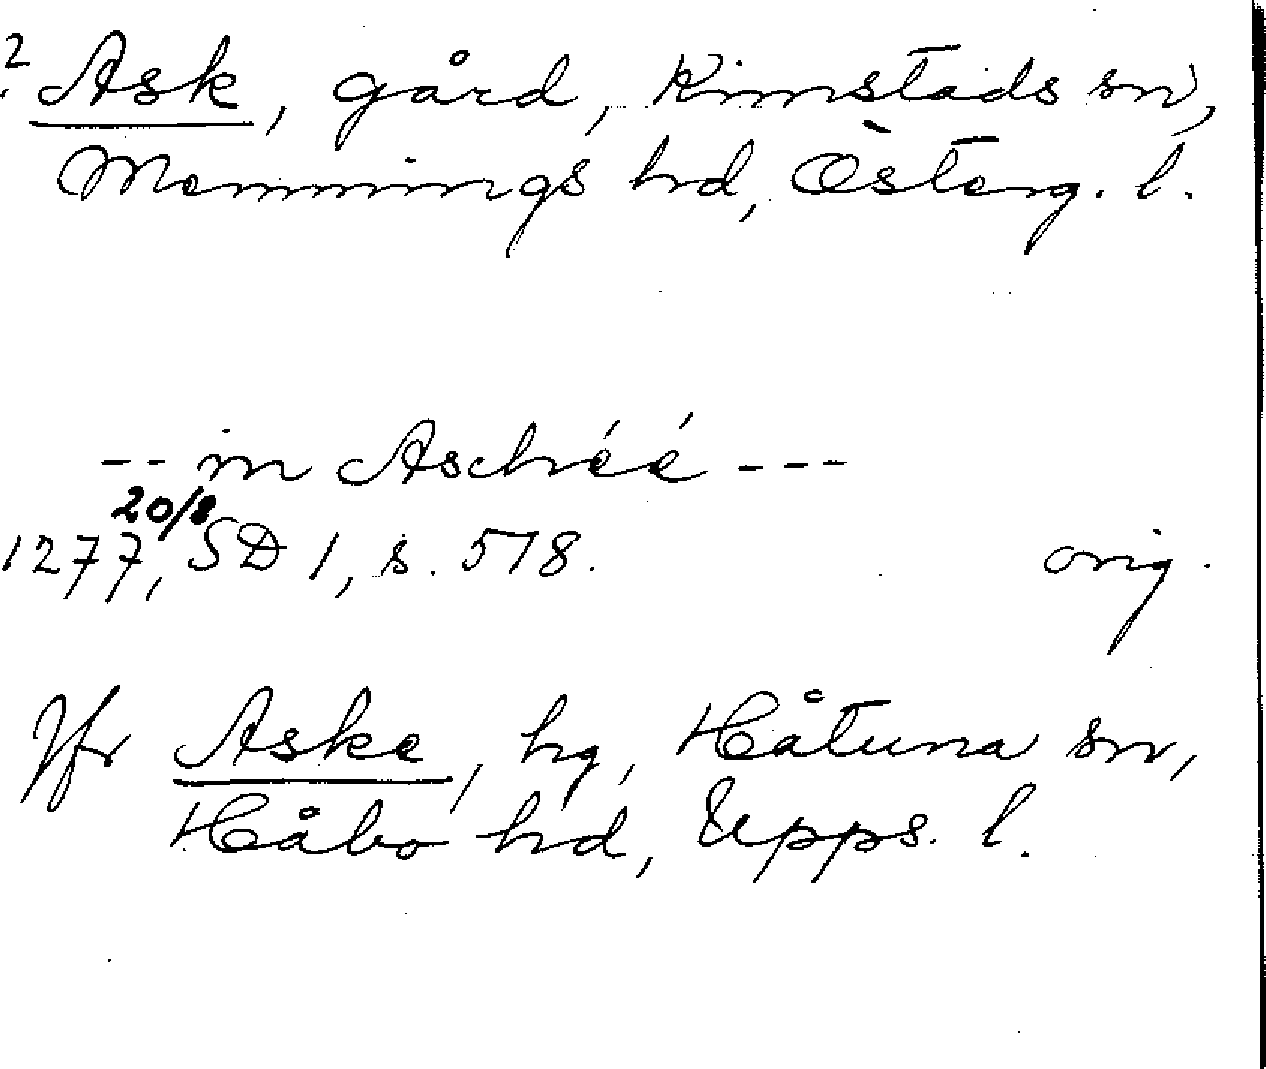 ? Ask, gård, Kimstads sn,
Memmings hd, Österg. l.
-- in Aschéé ---
20/8
1277, SD 1, s. 518. orig.
Jfr Aske, hg, Håtuna sn,
Håbo hd, Upps. l.